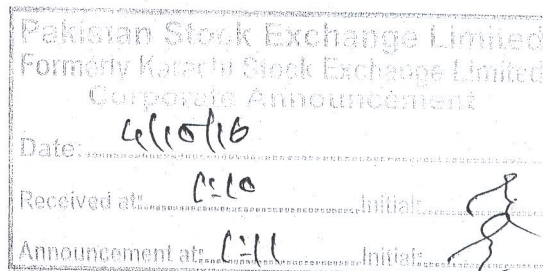 Pakistan Stock Exchange Limited
Formerly Karachi Stock Exchange Limited
Corporate Announcement
Date: 4/10/16
Received at: 1:10 Initial:
Announcement at: 1:11 Initial: